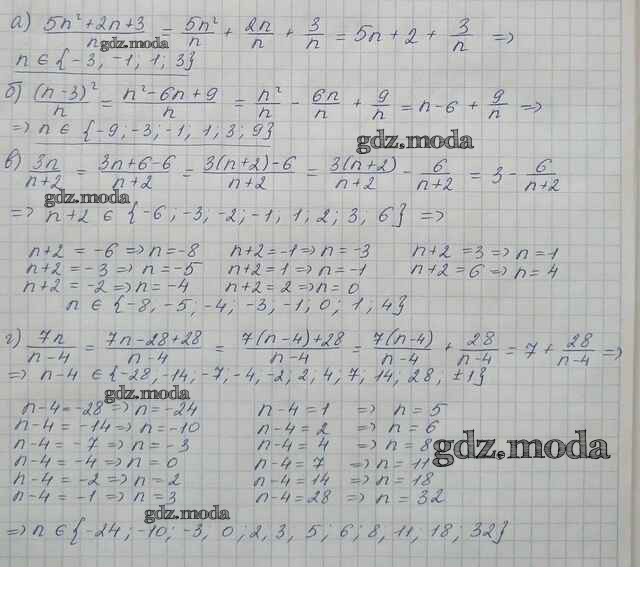 а) (5n² + 2n + 3)/n = 5n²/n + 2n/n + 3/n = 5n + 2 + 3/n ⇒
gdz.moda
n ∈ {-3, -1; 1; 3}
б) (n-3)²/n = (n² - 6n + 9)/n = n²/n - 6n/n + 9/n = n - 6 + 9/n ⇒
⇒ n ∈ {-9; -3; -1, 1, 3, 9}
gdz.moda
в) 3n/(n+2) = (3n+6-6)/(n+2) = (3(n+2)-6)/(n+2) = 3(n+2)/(n+2) - 6/(n+2) = 3 - 6/(n+2)
gdz.moda
⇒ n+2 ∈ {-6; -3; -2; -1, 1; 2; 3; 6} ⇒
n+2 = -6 ⇒ n = -8 n+2 = -1 ⇒ n = -3 n+2 = 3 ⇒ n = 1
n+2 = -3 ⇒ n = -5 n+2 = 1 ⇒ n = -1 n+2 = 6 ⇒ n = 4
n+2 = -2 ⇒ n = -4 n+2 = 2 ⇒ n = 0
n ∈ {-8, -5; -4; -3, -1; 0; 1; 4}
г) 7n/(n-4) = (7n-28+28)/(n-4) = (7(n-4)+28)/(n-4) = 7(n-4)/(n-4) + 28/(n-4) = 7 + 28/(n-4) ⇒
⇒ n-4 ∈ {-28, -14; -7, -4, -2; 2; 4; 7; 14; 28, ±1}
gdz.moda
n-4 = -28 ⇒ n = -24 n-4 = 1 ⇒ n = 5
n-4 = -14 ⇒ n = -10 n-4 = 2 ⇒ n = 6
n-4 = -7 ⇒ n = -3 n-4 = 4 ⇒ n = 8
gdz.moda
n-4 = -4 ⇒ n = 0 n-4 = 7 ⇒ n = 11
n-4 = -2 ⇒ n = 2 n-4 = 14 ⇒ n = 18
n-4 = -1 ⇒ n = 3 n-4 = 28 ⇒ n = 32
gdz.moda
⇒ n ∈ {-24; -10; -3, 0; 2, 3, 5; 6; 8, 11, 18; 32}